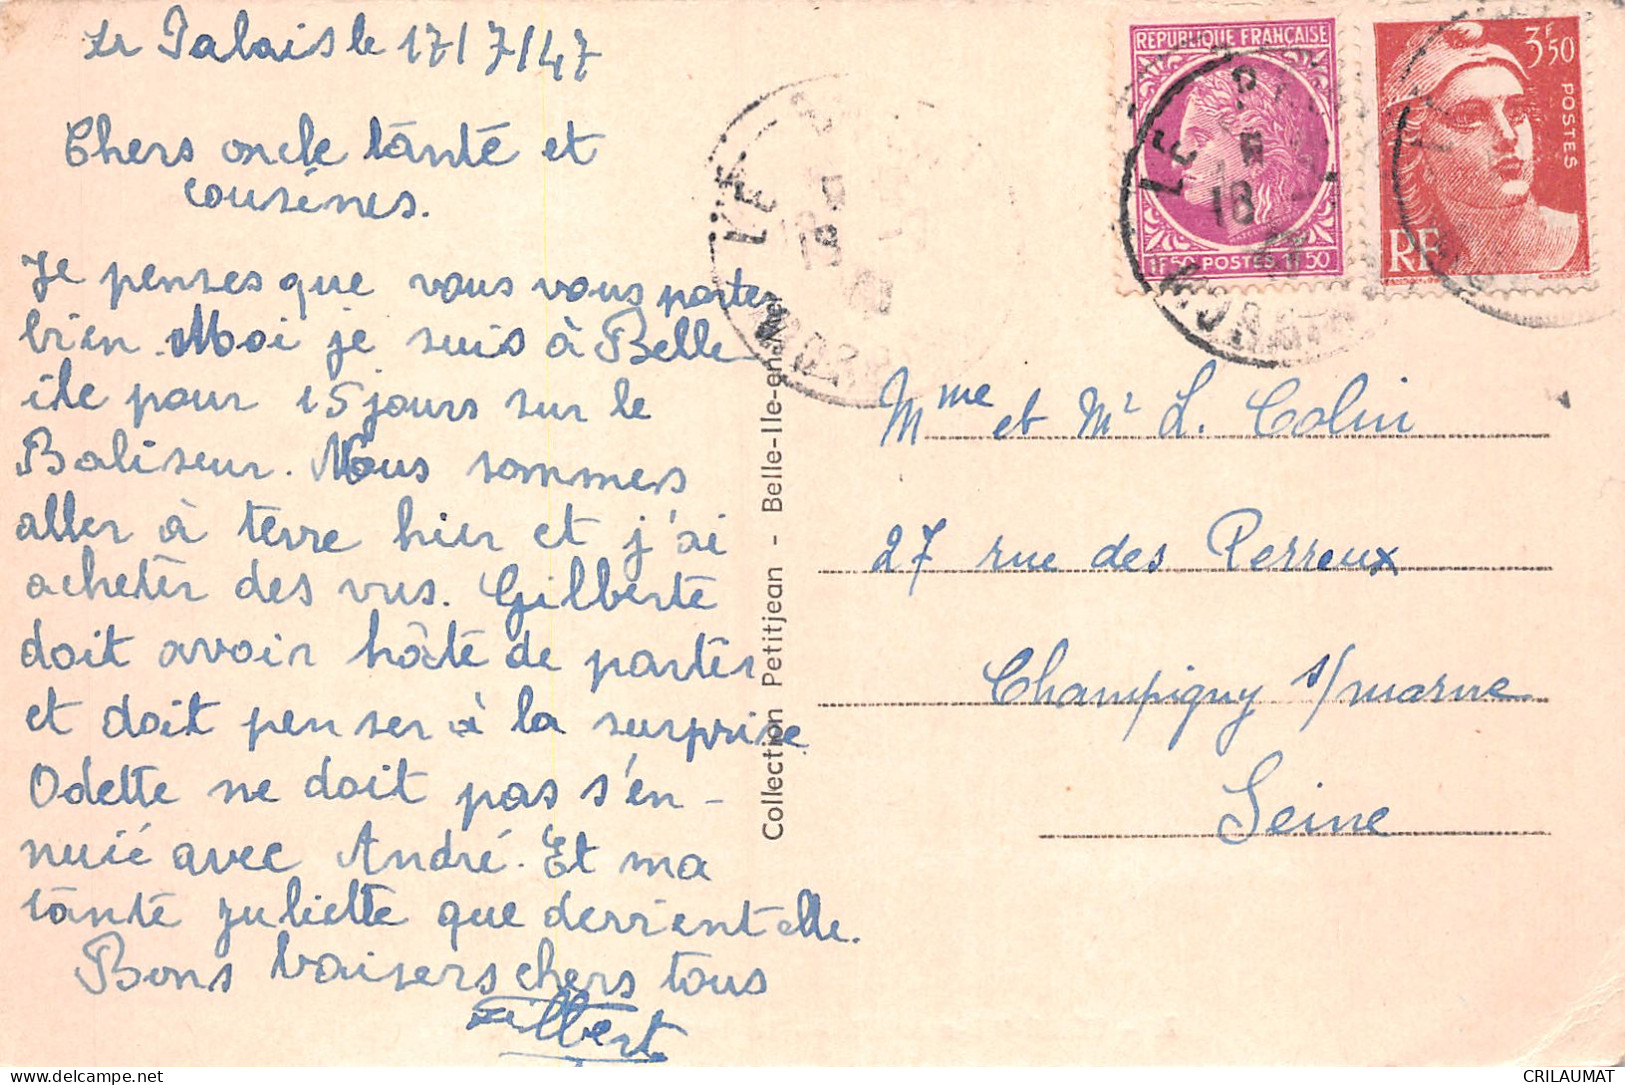 Le Palais le 17/7/47
Chers oncle tánté et
cousénes.
Je penses que vous vous porter
bien. Moi je suis à Belle
ile pour 15 jours sur le
Baliseur. Nous sommes
aller à terre hier et j'ai
acheter des vus. Gilberte
doit avoir hâte de parter
et doit penser à la surprise
Odette ne doit pas s'en-
nuié avec André. Et ma
tánté juliette que derrient elle.
Bons baisers chers tous
Gilbert
Collection Petitjean - Belle-Ile-en-Mer
REPUBLIQUE FRANÇAISE
1F50 POSTES 1F50
3F50
POSTES
RF
LE
18
LE
Mme et Mr L. Colin
27 rue des Perreux
Champigny s/marne
Seine
CRILAUMAT